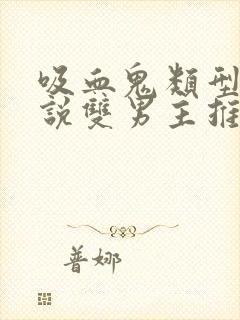 吸血鬼類型
說雙男主推
普娜